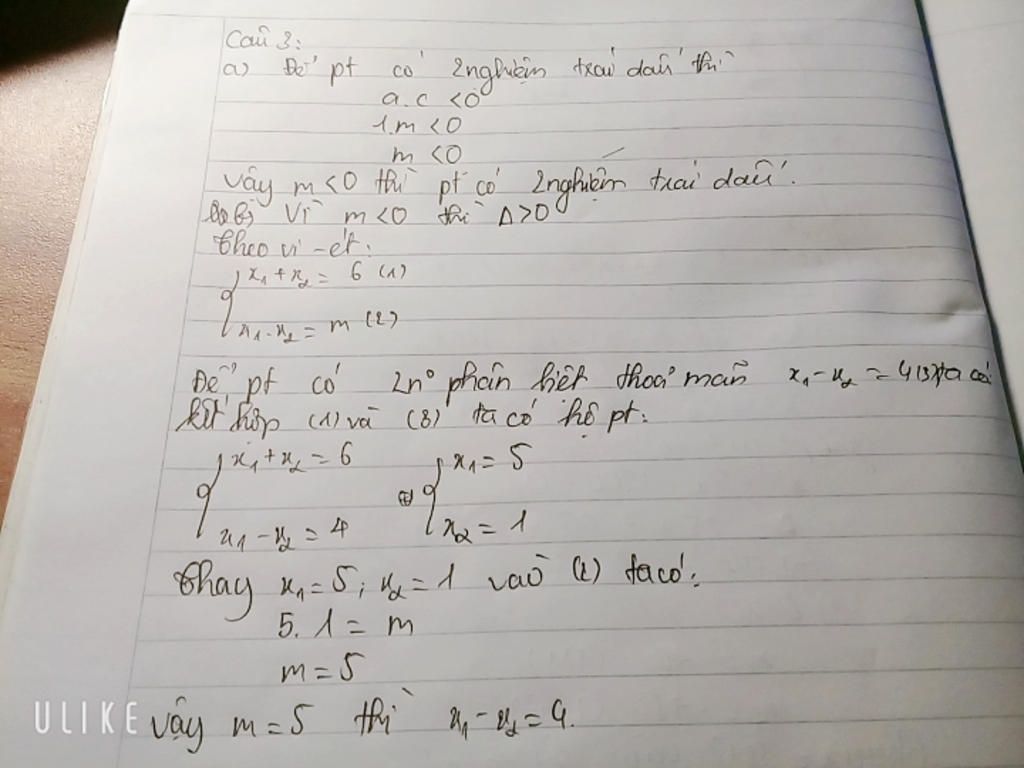 Câu 3:
a) Để pt có 2 nghiệm trái dấu thì
a.c <0
1.m <0
m <0
Vậy m <0 thì pt có 2 nghiệm trái dấu.
b) Vì m <0 thì Δ>0
Theo vi-ét:
x₁ + x₂ = 6 (1)
x₁ - x₂ = m (2)
Để pt có 2n° phân biệt thoả mãn x₁ - x₂ = 4 (3) ta có
kết hợp (1) và (3) ta có hệ pt:
x₁ + x₂ = 6 x₁ = 5
x₁ - x₂ = 4 ⇔ x₂ = 1
Thay x₁ = 5; x₂ = 1 vào (2) ta có:
5. 1 = m
m = 5
Vậy m = 5 thì x₁ - x₂ = 4.
ULIKE